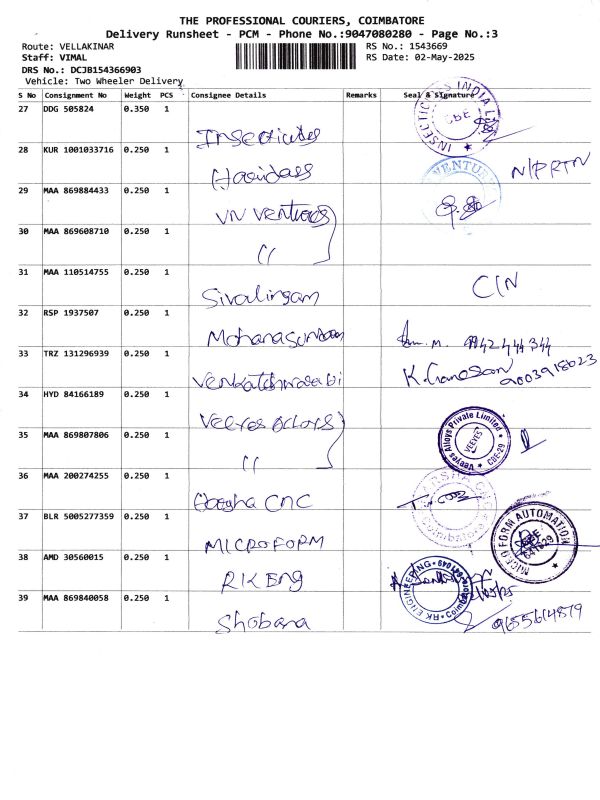 THE PROFESSIONAL COURIERS, COIMBATORE
Delivery Runsheet - PCM - Phone No.:9047080280 - Page No.:3
Route: VELLAKINAR
RS No.: 1543669
Staff: VIMAL
RS Date: 02-May-2025
DRS No.: DCJB154366903
Vehicle: Two Wheeler Delivery
S No Consignment No Weight PCS Consignee Details Remarks Seal & Signature
27 DDG 505824 0.350 1
28 KUR 1001033716 0.250 1
Haridass N/P RTN
29 MAA 869884433 0.250 1
VN Ventures
30 MAA 869608710 0.250 1
11
31 MAA 110514755 0.250 1
Sivalingam
32 RSP 1937507 0.250 1
33 TRZ 131296939 0.250 1
9003918023
34 HYD 84166189 0.250 1
Veeyes Alloys Private Limited
VEEYES
CBE-29
35 MAA 869807806 0.250 1
11
36 MAA 200274255 0.250 1
CNC
Coimbatore
37 BLR 5005277359 0.250 1
MICROFORM
MICRO FORM AUTOMATION
38 AMD 30560015 0.250 1
RK Eng
RK ENGINEERING
39 MAA 869840058 0.250 1
Shobana
9655614879